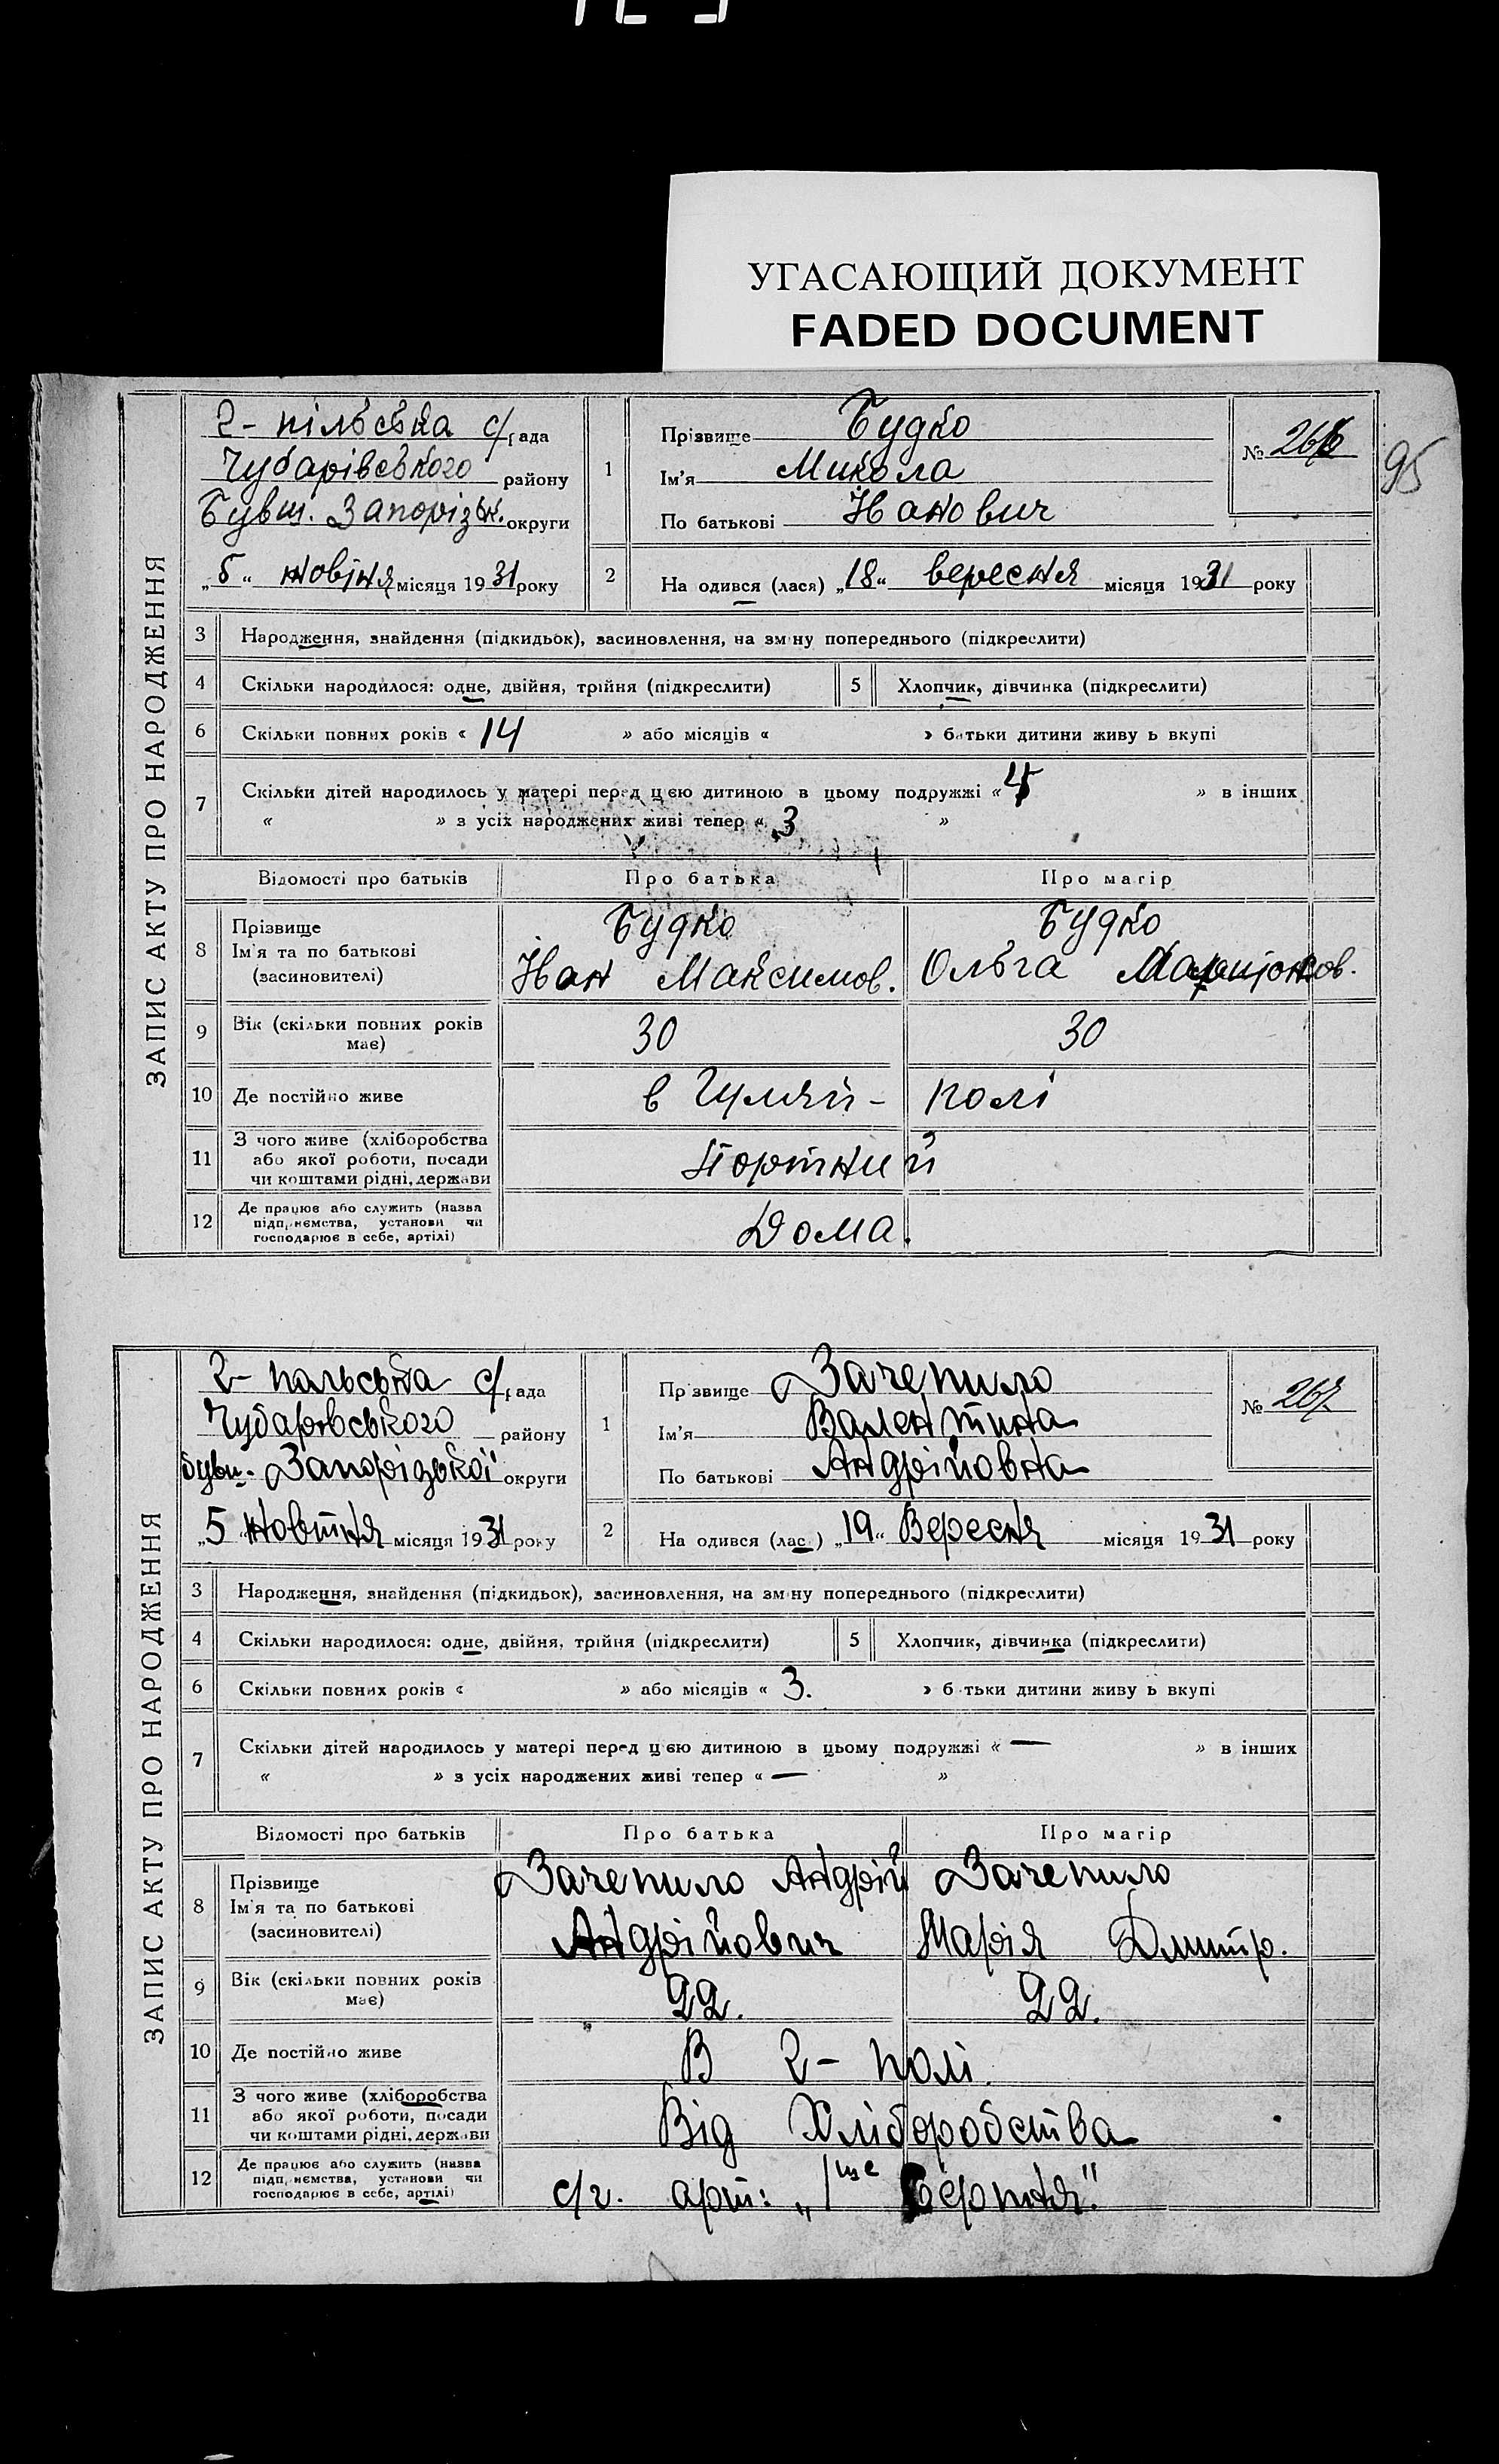 УГАСАЮЩИЙ ДОКУМЕНТ
FADED DOCUMENT
95
ЗАПИС АКТУ ПРО НАРОДЖЕННЯ
2- пільська с/рада
Чубарівського району
Бувш. Запорізьк. округи
„5" жовтня місяця 1931 року
1
Прізвище Будко
Ім'я Микола
По батькові Іванович
№ 266
2
Народився (лася) „18" вересня місяця 1931 року
3 Народження, знайдення (підкидьок), засиновлення, на зміну попереднього (підкреслити)
4 Скільки народилося: одне, двійня, трійня (підкреслити) 5 Хлопчик, дівчинка (підкреслити)
6 Скільки повних років « 14 » або місяців « » батьки дитини живуть вкупі
7 Скільки дітей народилось у матері перед цією дитиною в цьому подружжі « 4 » в інших
« » з усіх народжених живі тепер « 3 »
Відомості про батьків Про батька Про матір
8 Прізвище
Ім'я та по батькові
(засиновителі)
Будко
Іван Максимов.
Будко
Ольга
9 Вік (скільки повних років має) 30 30
10 Де постійно живе в Гуляй- полі
11 З чого живе (хліборобства
або якої роботи, посади
чи коштами рідні, держави
Портний
12 Де працює або служить (назва
підприємства, установи чи
господарює в себе, артілі)
Дома.
ЗАПИС АКТУ ПРО НАРОДЖЕННЯ
2- польська с/рада
Чубаровського району
бувш. Запорізької округи
„5 жовтня місяця 1931 року
1
Прізвище Зачепило
Ім'я Валентина
По батькові Андрійовна
№ 267
2
Народився (лась) „19" Вересня місяця 1931 року
3 Народження, знайдення (підкидьок), засиновлення, на зміну попереднього (підкреслити)
4 Скільки народилося: одне, двійня, трійня (підкреслити) 5 Хлопчик, дівчинка (підкреслити)
6 Скільки повних років « » або місяців « 3. » батьки дитини живуть вкупі
7 Скільки дітей народилось у матері перед цією дитиною в цьому подружжі « — » в інших
« » з усіх народжених живі тепер « — »
Відомості про батьків Про батька Про матір
8 Прізвище
Ім'я та по батькові
(засиновителі)
Зачепило Андрій
Андрійович
Зачепило
Марія Дмитр.
9 Вік (скільки повних років має) 22. 22.
10 Де постійно живе В 2- полі.
11 З чого живе (хліборобства
або якої роботи, посади
чи коштами рідні, держави
Від Хліборобства
12 Де працює або служить (назва
підприємства, установи чи
господарює в себе, артілі)
с/г. арт: „1ше